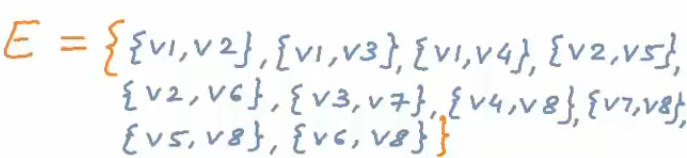 E = {{v1,v2},{v1,v3},{v1,v4},{v2,v5},
{v2,v6},{v3,v7},{v4,v8},{v7,v8},
{v5,v8},{v6,v8}}